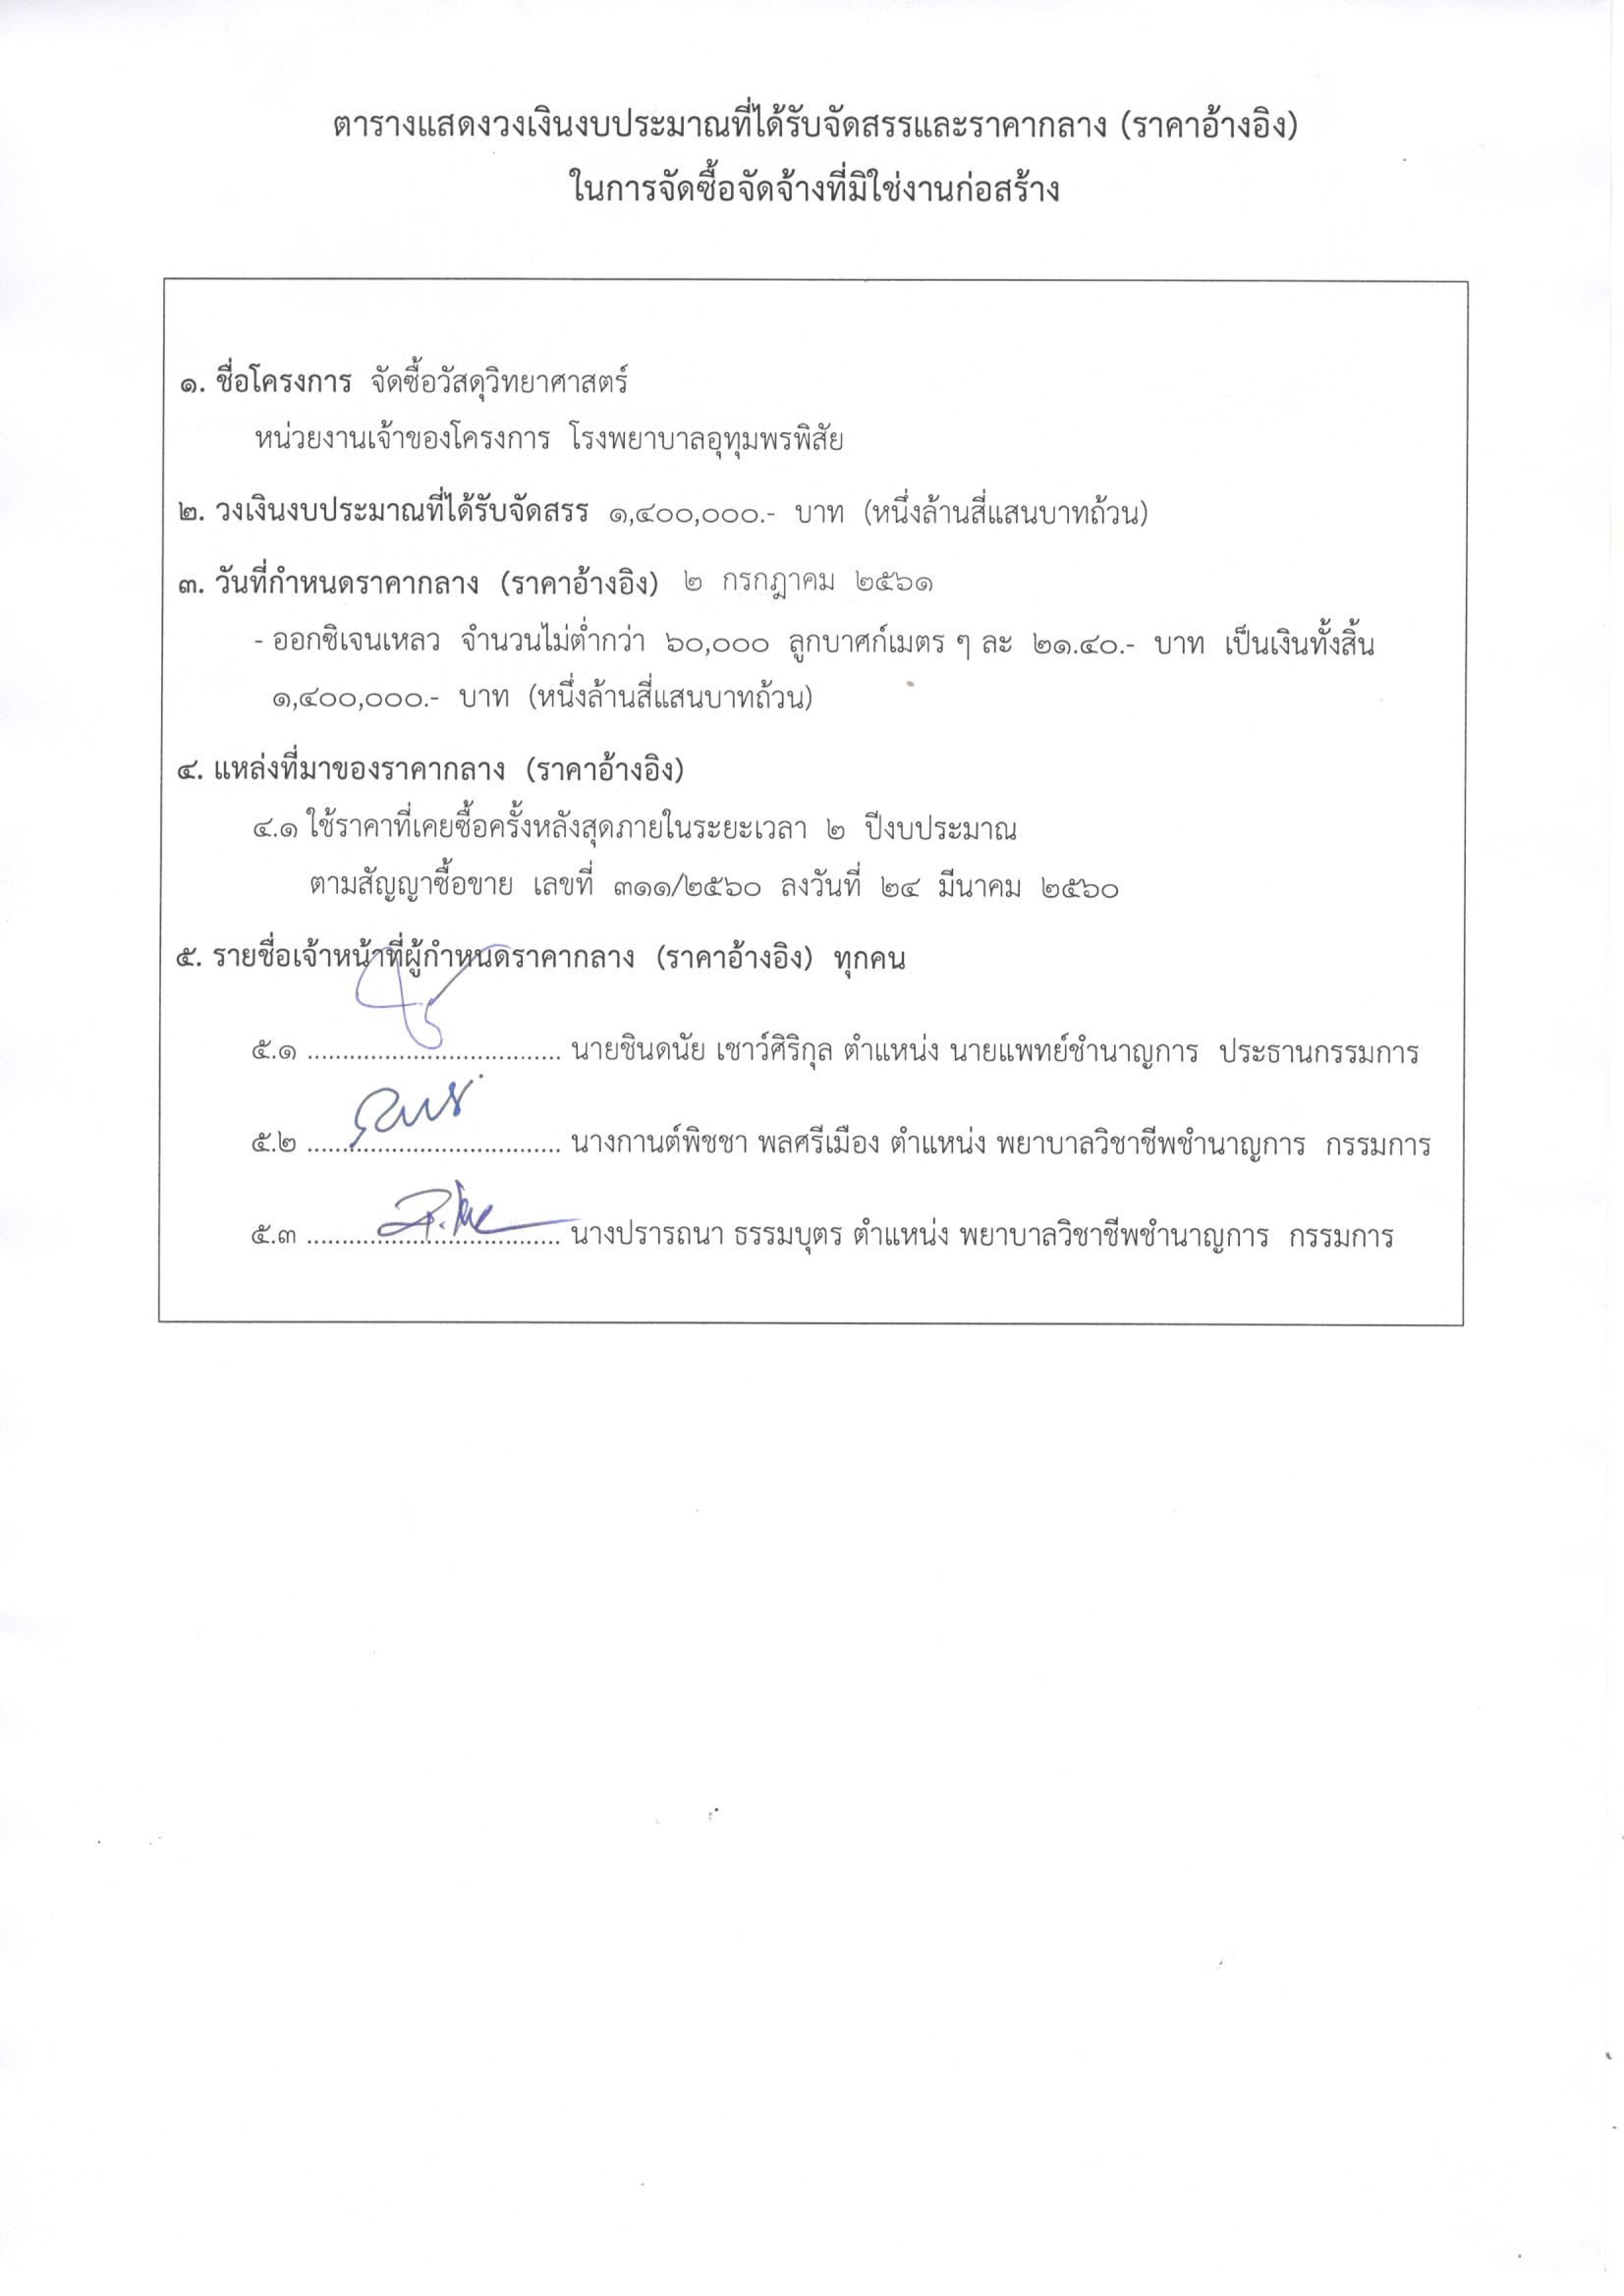 ตารางแสดงวงเงินงบประมาณที่ได้รับจัดสรรและราคากลาง (ราคาอ้างอิง)
ในการจัดซื้อจัดจ้างที่มิใช่งานก่อสร้าง
๑. ชื่อโครงการ จัดซื้อวัสดุวิทยาศาสตร์
หน่วยงานเจ้าของโครงการ โรงพยาบาลอุทุมพรพิสัย
๒. วงเงินงบประมาณที่ได้รับจัดสรร ๑,๔๐๐,๐๐๐.- บาท (หนึ่งล้านสี่แสนบาทถ้วน)
๓. วันที่กำหนดราคากลาง (ราคาอ้างอิง) ๒ กรกฎาคม ๒๕๖๑
- ออกซิเจนเหลว จำนวนไม่ต่ำกว่า ๖๐,๐๐๐ ลูกบาศก์เมตร ๆ ละ ๒๑.๔๐.- บาท เป็นเงินทั้งสิ้น
๑,๔๐๐,๐๐๐.- บาท (หนึ่งล้านสี่แสนบาทถ้วน)
๔. แหล่งที่มาของราคากลาง (ราคาอ้างอิง)
๔.๑ ใช้ราคาที่เคยซื้อครั้งหลังสุดภายในระยะเวลา ๒ ปีงบประมาณ
ตามสัญญาซื้อขาย เลขที่ ๓๑๑/๒๕๖๐ ลงวันที่ ๒๔ มีนาคม ๒๕๖๐
๕. รายชื่อเจ้าหน้าที่ผู้กำหนดราคากลาง (ราคาอ้างอิง) ทุกคน
๕.๑ .................................... นายชินดนัย เชาว์ศิริกุล ตำแหน่ง นายแพทย์ชำนาญการ ประธานกรรมการ
๕.๒ .................................... นางกานต์พิชชา พลศรีเมือง ตำแหน่ง พยาบาลวิชาชีพชำนาญการ กรรมการ
๕.๓ .................................... นางปรารถนา ธรรมบุตร ตำแหน่ง พยาบาลวิชาชีพชำนาญการ กรรมการ